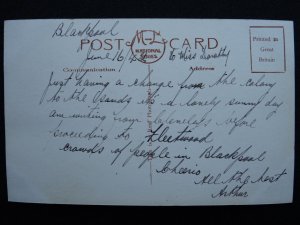 Blackpool
June 16
to Miss Dorothy
POST CARD
NATIONAL
SERIES
Printed in
Great
Britain
Communication
Address
Just having a change from the colony
to the Sands its a lovely sunny day
am writing from Cleveleys before
proceeding to Fleetwood
crowds of people in Blackpool
Cheerio
All the best
Arthur